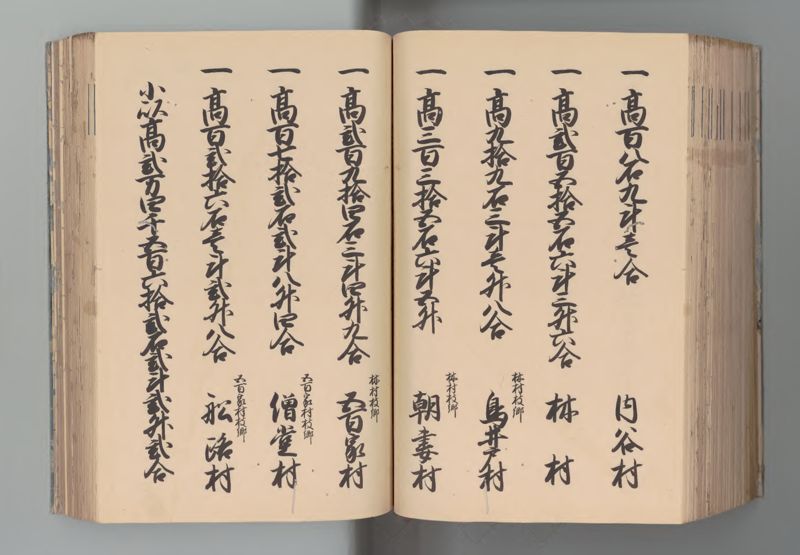 一 高百八石九斗壱合 内谷村
一 高弐百五拾五石六斗三升六合 林村
林村枝郷
一 高九拾九石三斗壱升八合 鳥井戸村
林村枝郷
一 高三百三拾五石六斗五升 朝妻村
林村枝郷
一 高弐百九拾四石三斗四升九合 五百家村
五百家村枝郷
一 高百七拾弐石弐斗八升四合 僧堂村
五百家村枝郷
一 高百弐拾六石壱斗弐升八合 船路村
小以高弐万四千五百六拾弐石弐斗弐升弐合